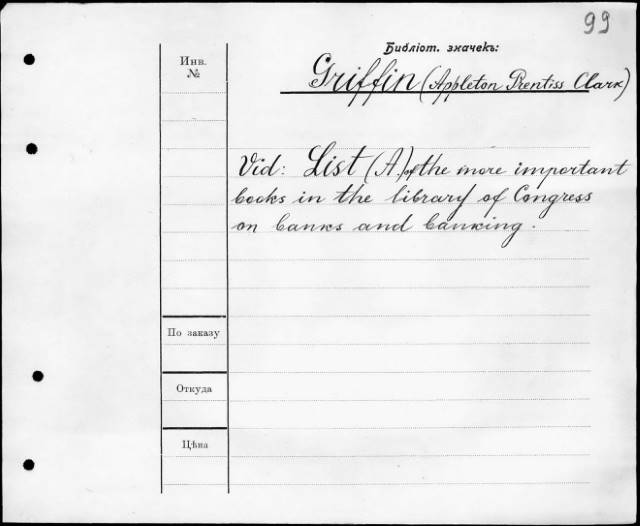 99
Библіот. значекъ:
Инв.
№
Griffin (Appleton Prentiss Clark)
Vid: List (A) of the more important
books in the library of Congress
on banks and banking.
По заказу
Откуда
Цѣна